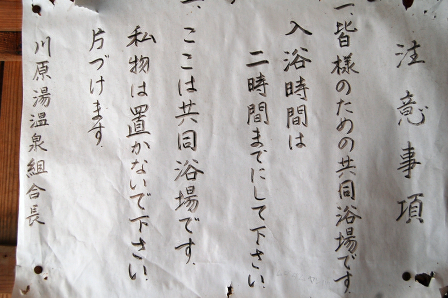 注意事項
一、皆様のための共同浴場です
入浴時間は
二時間までにして下さい
一、ここは共同浴場です
私物は置かないで下さい
片づけます
川原湯温泉組合長